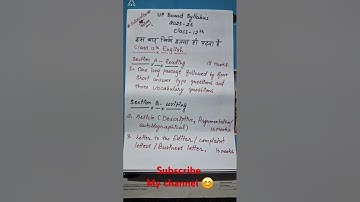 UP Board Syllabus
2025-26
Class-12th
इस बार सिर्फ इतना ही पढ़ना है
Class 12th English
Section A - Reading 15 marks
1- One long passage followed by four
short answer type questions and
three vocabulary questions
Section B- writing
2. Article (Descriptive, Argumentative/
autobiographical) 10 marks
3. Letter to the Editor / complaint
letters / Business letter. 10 marks
Subscribe
My channel 😊